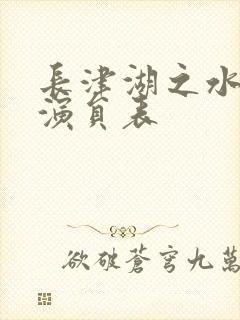 長津湖之水
演員表
欲破蒼穹九萬